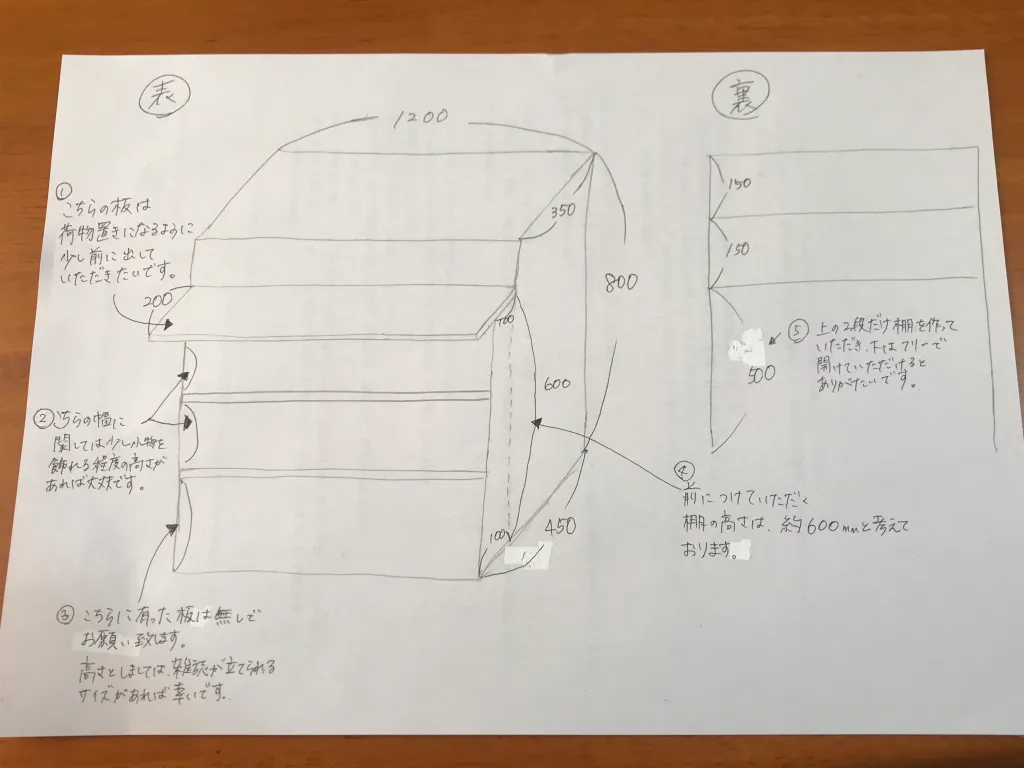 表
1200
350
800
① こちらの板は
荷物置きになるように
少し前に出して
いただきたいです。
200
100
600
② こちらの幅に
関しては少し小物を
飾れる程度の高さが
あれば大丈夫です。
100
450
③ こちらに有った板は無しで
お願い致します。
高さとしましては、雑誌が立てられる
サイズがあれば幸いです。
④
前につけていただく
棚の高さは、約600mmと考えて
おります。
裏
150
150
500
⑤ 上の2段だけ棚を作って
いただき、下はフリーで
開けていただけると
ありがたいです。